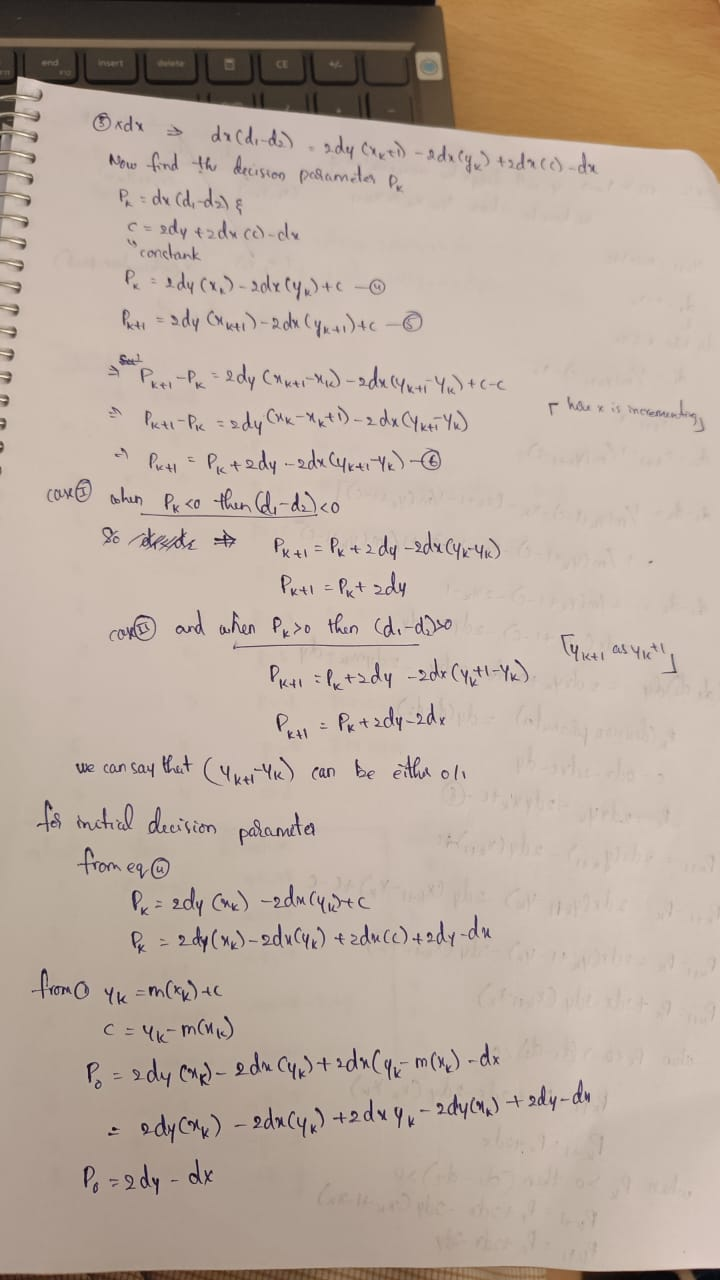 end insert delete CE +/-
③ × dx ⇒ dx(d₁-d₂) = 2dy(xₖ+1) - 2dx(yₖ) + 2dx(c) - dx
Now find the decision parameter Pₖ
Pₖ = dx(d₁-d₂) &
c = 2dy + 2dx(c) - dx
constank
Pₖ = 2dy(xₖ) - 2dx(yₖ) + c - ④
Pₖ₊₁ = 2dy(xₖ₊₁) - 2dx(yₖ₊₁) + c - ⑤
⇒ Pₖ₊₁ - Pₖ = 2dy(xₖ₊₁ - xₖ) - 2dx(yₖ₊₁ - yₖ) + c - c
⇒ Pₖ₊₁ - Pₖ = 2dy(xₖ - xₖ + 1) - 2dx(yₖ₊₁ - yₖ) ┌ how x is incrementing
⇒ Pₖ₊₁ = Pₖ + 2dy - 2dx(yₖ₊₁ - yₖ) - ⑥
case Ⓘ when Pₖ < 0 then (d₁-d₂) < 0
So ⇒ Pₖ₊₁ = Pₖ + 2dy - 2dx(yₖ - yₖ)
Pₖ₊₁ = Pₖ + 2dy
case II and when Pₖ > 0 then (d₁-d₂) > 0
Pₖ₊₁ = Pₖ + 2dy - 2dx(yₖ + 1 - yₖ) ⌈yₖ₊₁ as yₖ + 1⌋
Pₖ₊₁ = Pₖ + 2dy - 2dx
we can say that (yₖ₊₁ - yₖ) can be either 0/1
for initial decision parameter
from eq ④
Pₖ = 2dy(xₖ) - 2dx(yₖ) + c
Pₖ = 2dy(xₖ) - 2dx(yₖ) + 2dx(c) + 2dy - dx
from ① yₖ = m(xₖ) + c
c = yₖ - m(xₖ)
P₀ = 2dy(xₖ) - 2dx(yₖ) + 2dx(yₖ - m(xₖ) - dx
= 2dy(xₖ) - 2dx(yₖ) + 2dx yₖ - 2dy(xₖ) + 2dy - dx
P₀ = 2dy - dx